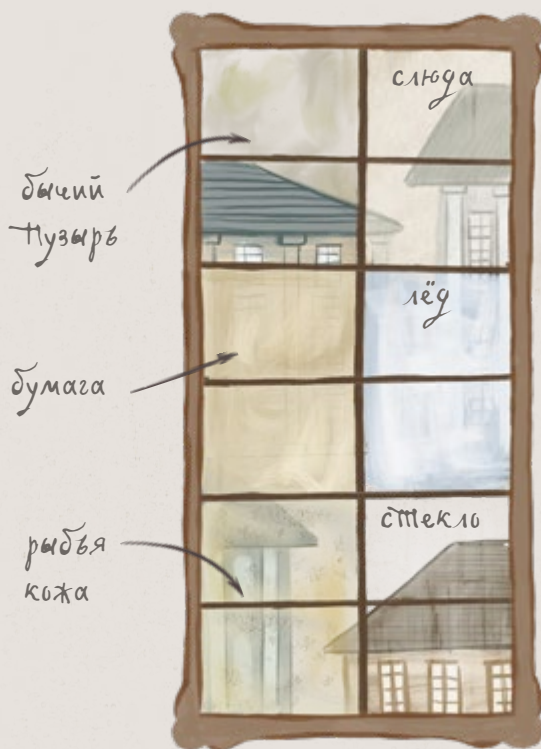 слюда
бычий
пузырь
лёд
бумага
стекло
рыбья
кожа